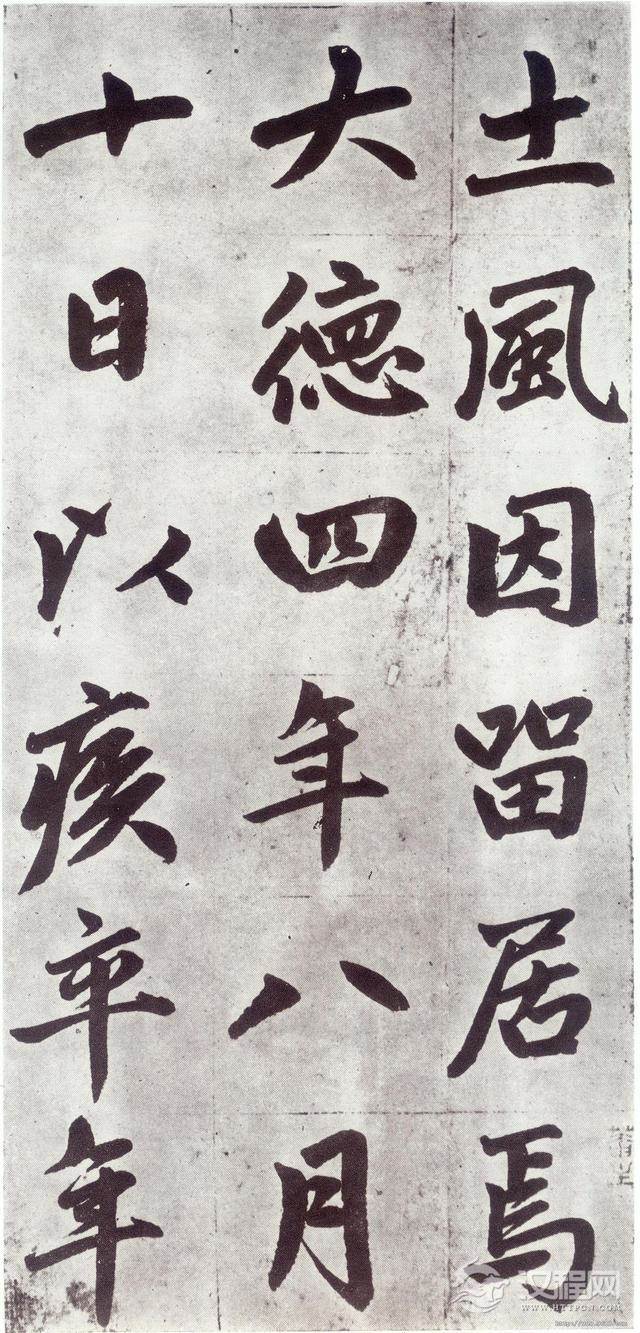 土風因留居焉
大德四年八月
十日以疾卒年
汉程网
WWW.HTTPCN.COM